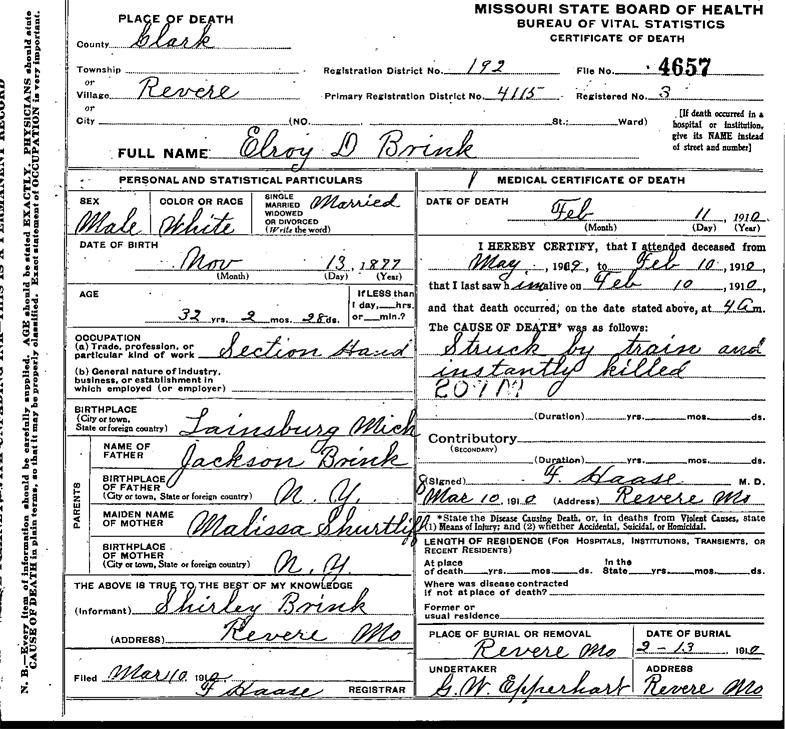 MISSOURI STATE BOARD OF HEALTH
BUREAU OF VITAL STATISTICS
CERTIFICATE OF DEATH
PLACE OF DEATH
County Clark
Township
or
Village Revere
or
City (NO. St.; Ward)
Registration District No. 192 File No. 4657
Primary Registration District No. 4115 Registered No. 3
[If death occurred in a
hospital or institution,
give its NAME instead
of street and number]
FULL NAME Elroy D Brink
PERSONAL AND STATISTICAL PARTICULARS
SEX
Male
COLOR OR RACE
White
SINGLE
MARRIED
WIDOWED
OR DIVORCED
(Write the word)
Married
DATE OF BIRTH
Nov 13, 1877
(Month) (Day) (Year)
AGE
32 yrs. 2 mos. 28 ds.
If LESS than
1 day, hrs.
or min.?
OCCUPATION
(a) Trade, profession, or
particular kind of work Section Hand
(b) General nature of industry,
business, or establishment in
which employed (or employer)
BIRTHPLACE
(City or town,
State or foreign country) Lainsburg Mich
PARENTS
NAME OF
FATHER Jackson Brink
BIRTHPLACE
OF FATHER
(City or town, State or foreign country) N. Y.
MAIDEN NAME
OF MOTHER Malissa Shurtliff
BIRTHPLACE
OF MOTHER
(City or town, State or foreign country) N. Y.
THE ABOVE IS TRUE TO THE BEST OF MY KNOWLEDGE
(Informant) Shirley Brink
(ADDRESS) Revere Mo
Filed Mar 10, 1910
F Haase REGISTRAR
MEDICAL CERTIFICATE OF DEATH
DATE OF DEATH
Feb 11, 1910
(Month) (Day) (Year)
I HEREBY CERTIFY, that I attended deceased from
May, 1909, to Feb 10, 1910,
that I last saw him alive on Feb 10, 1910,
and that death occurred, on the date stated above, at 4 a m.
The CAUSE OF DEATH* was as follows:
Struck by train and
instantly killed
(Duration) yrs. mos. ds.
Contributory
(SECONDARY)
(Duration) yrs. mos. ds.
(Signed) F. Haase M. D.
Mar 10, 1910 (Address) Revere Mo
*State the Disease Causing Death, or, in deaths from Violent Causes, state
(1) Means of Injury; and (2) whether Accidental, Suicidal, or Homicidal.
LENGTH OF RESIDENCE (FOR HOSPITALS, INSTITUTIONS, TRANSIENTS, OR
RECENT RESIDENTS)
At place
of death yrs. mos. ds.
In the
State yrs. mos. ds.
Where was disease contracted
if not at place of death?
Former or
usual residence
PLACE OF BURIAL OR REMOVAL
Revere Mo
DATE OF BURIAL
2-13 1910
UNDERTAKER
G. W. Epperhart
ADDRESS
Revere Mo
N. B.—Every item of information should be carefully supplied. AGE should be stated EXACTLY. PHYSICIANS should state
CAUSE OF DEATH in plain terms, so that it may be properly classified. Exact statement of OCCUPATION is very important.